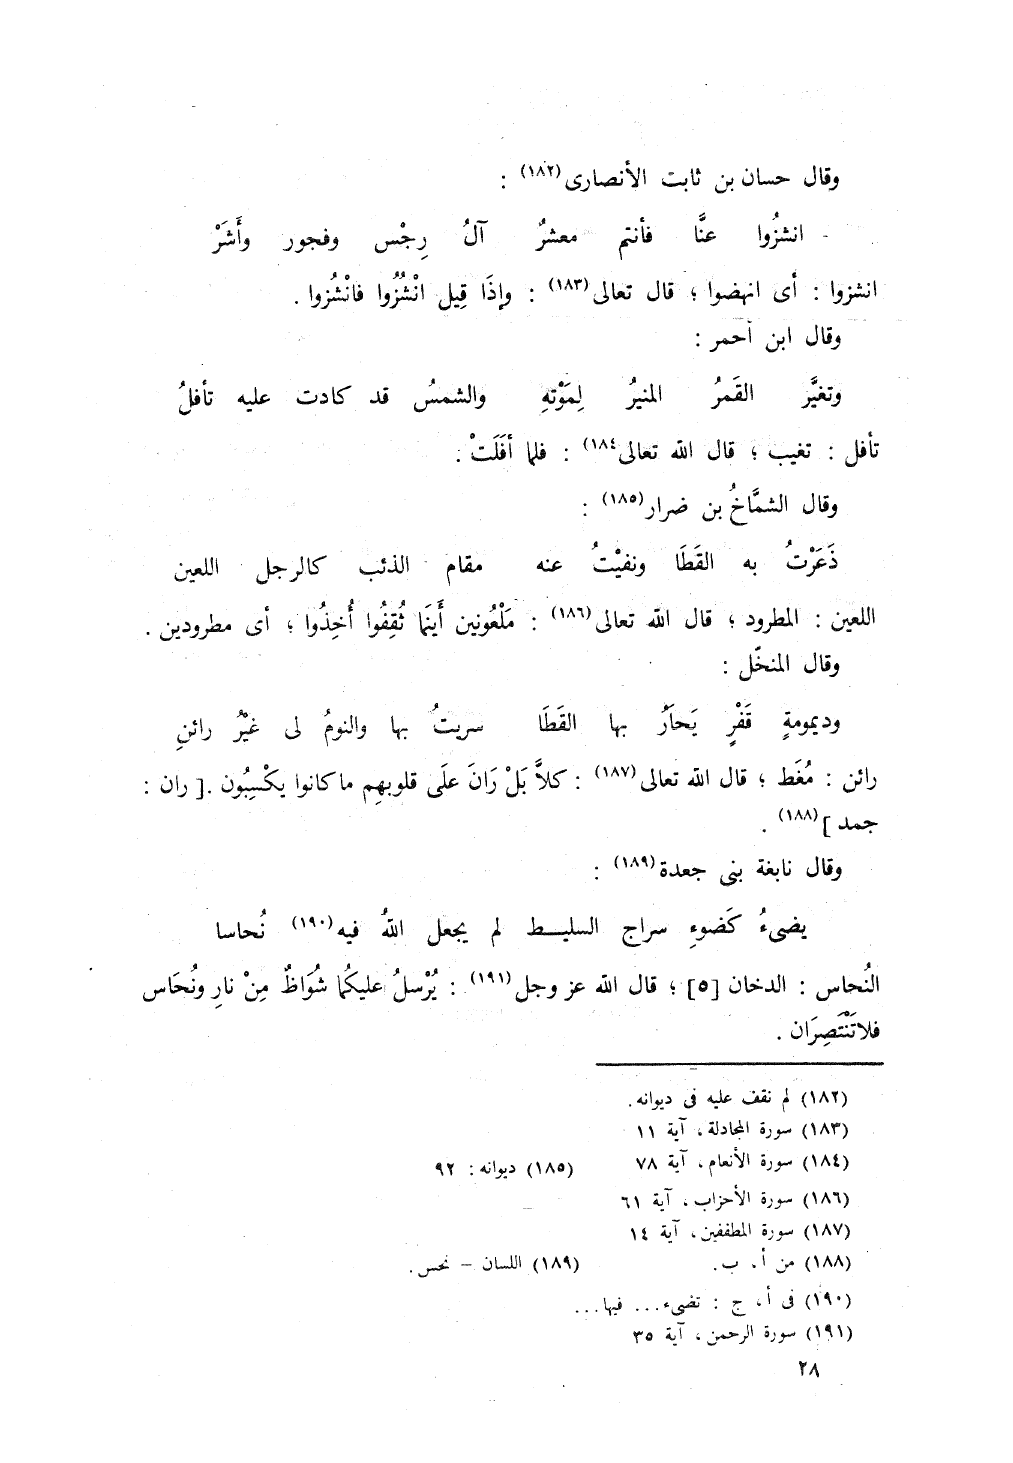 وقال حسان بن ثابت الأنصارى(١٨٢) :
- انشزُوا عنَّا فأنتم معشرٌ آلُ رِجْس وفجور وأَشَرْ
انشزوا : أى انهضوا ؛ قال تعالى(١٨٣) : وإذَا قِيل انْشُزُوا فانْشُزوا .
وقال ابن أحمر :
وتغيَّر القَمرُ المنيرُ لِمَوْتهِ والشمسُ قد كادت عليه تأفلُ
تأفل : تغيب ؛ قال الله تعالى(١٨٤) : فلما أفَلَتْ .
وقال الشمَّاخُ بن ضرار(١٨٥) :
ذَعَرْتُ به القَطَا ونفيْتُ عنه مقام الذئب كالرجل اللعين
اللعين : المطرود ؛ قال الله تعالى(١٨٦) : مَلْعُونين أَينَما ثُقِفُوا أُخِذُوا ؛ أى مطرودين .
وقال المنخّل :
وديمومةٍ قَفْرٍ يَحاَرُ بها القَطَا سريتُ بها والنومُ لى غيْرُ رائنِ
رائن : مُغَط ؛ قال الله تعالى(١٨٧) : كلاَّ بَلْ رَانَ علَى قلوبهِم ماكانوا يكْسِبُون .[ ران :
جمد ](١٨٨) .
وقال نابغة بنى جعدة(١٨٩) :
يضىءُ كَضوءِ سراج السليـــط لم يجعل اللهُ فيه(١٩٠) نُحاسا
النُحاس : الدخان [٥] ؛ قال الله عز وجل(١٩١) : يُرْسلُ عليكُما شُوَاظٌ مِنْ نارِ ونُحَاس
فلاتَنْتَصِرَان .
(١٨٢) لم نقف عليه فى ديوانه .
(١٨٣) سورة المجادلة ، آية ١١
(١٨٤) سورة الأنعام ، آية ٧٨ (١٨٥) ديوانه : ٩٢
(١٨٦) سورة الأحزاب ، آية ٦١
(١٨٧) سورة المطففين ، آية ١٤
(١٨٨) من أ ، ب . (١٨٩) اللسان – نحس .
(١٩٠) فى أ ، ج : تضىء ... فيها ...
(١٩١) سورة الرحمن ، آية ٣٥
٢٨